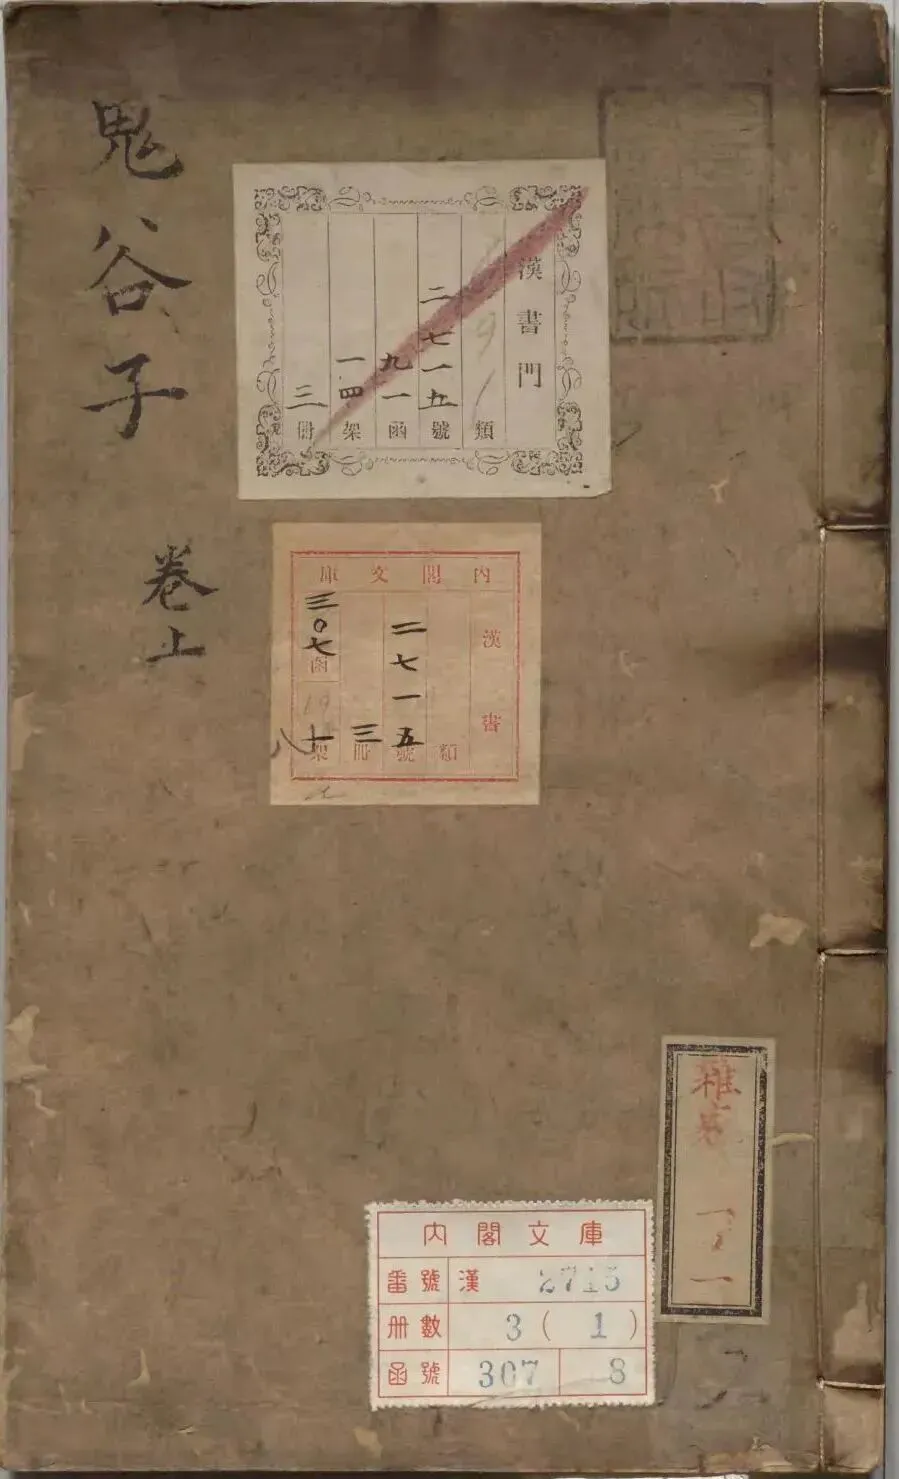 鬼谷子
卷上
漢書門
類
二七一五號
九一函
一四架
三冊
內閣文庫
漢書
類
二七一五號
三冊
三〇七函
架
雜家
內閣文庫
番號 漢 2715
冊數 3(1)
函號 307 8